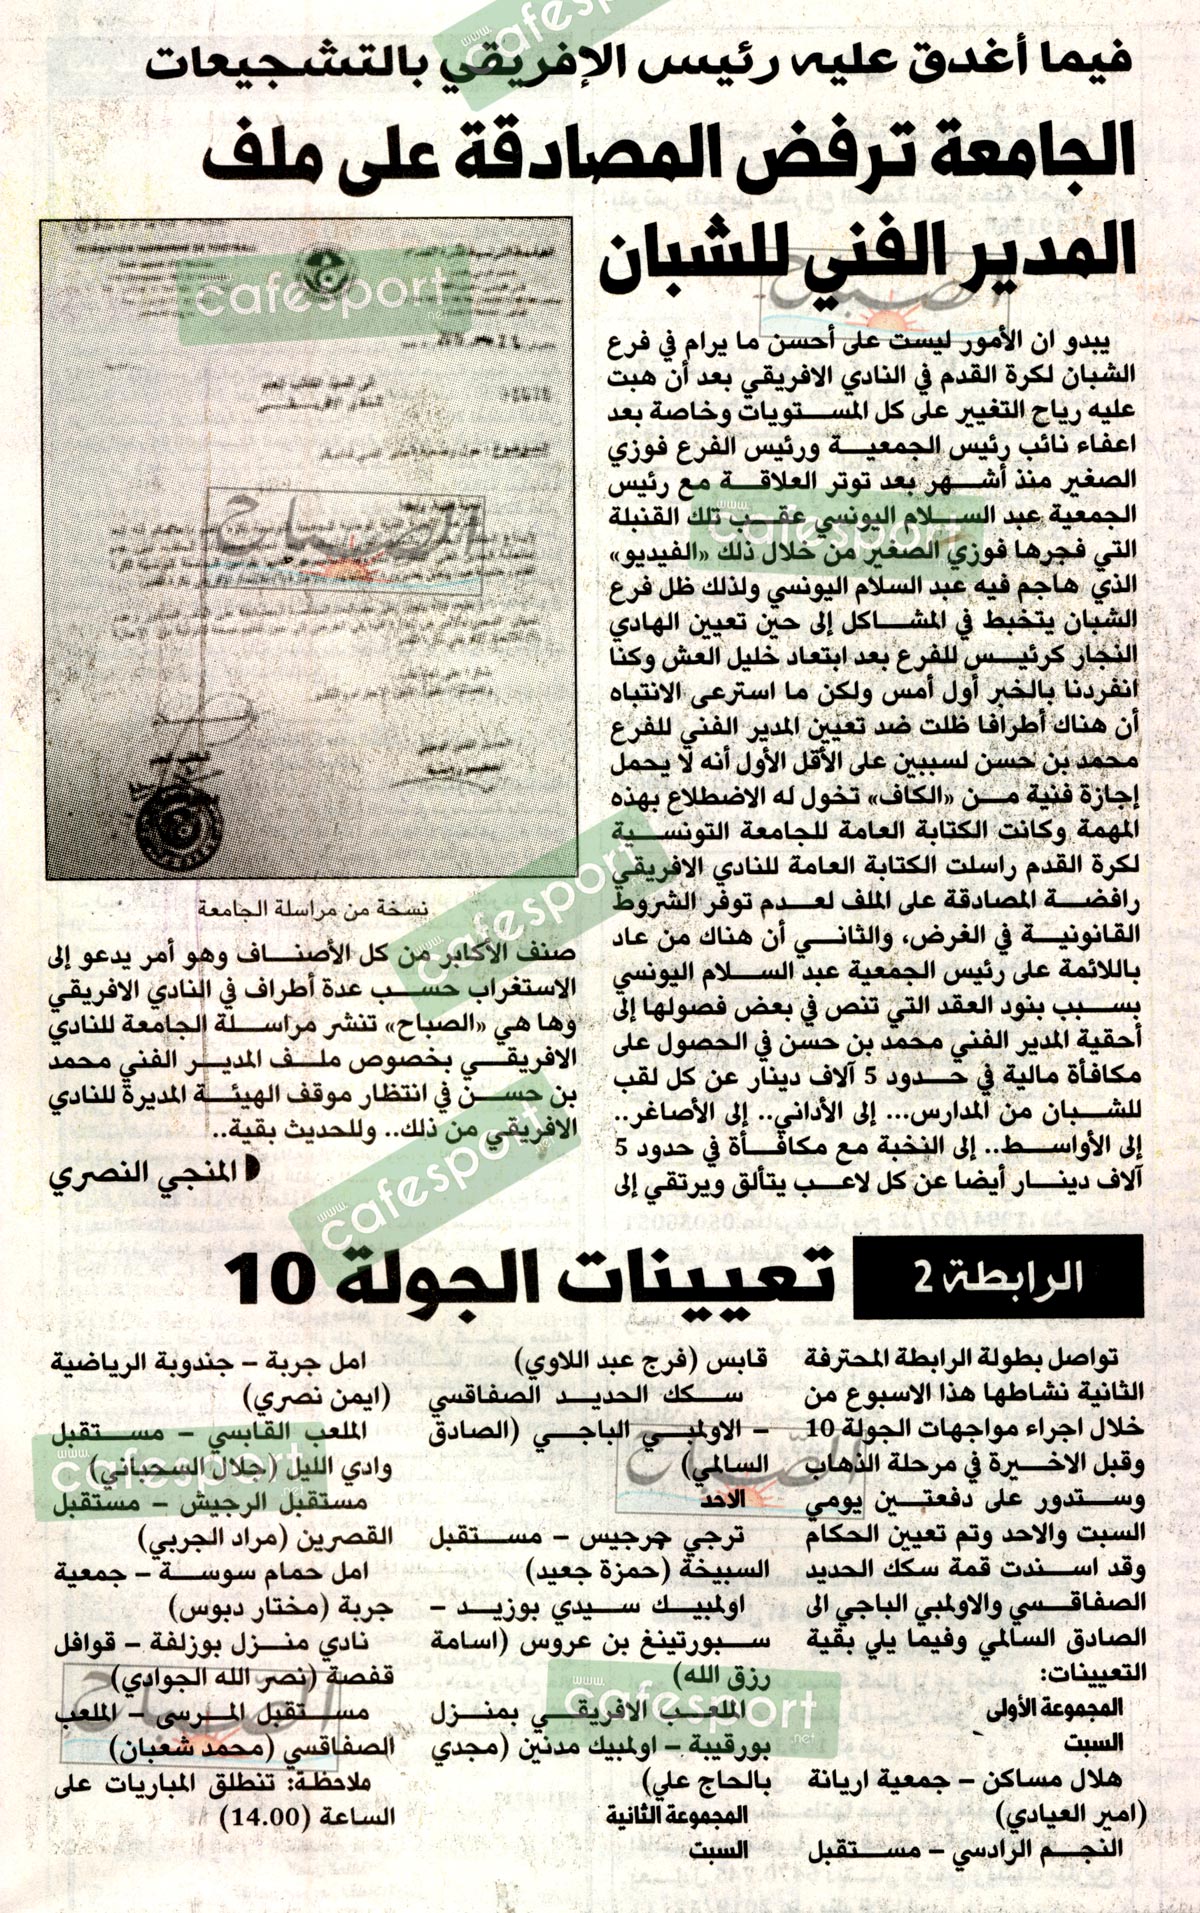 فيما أغدق عليه رئيس الإفريقي بالتشجيعات
الجامعة ترفض المصادقة على ملف
المدير الفني للشبان
يبدو ان الأمور ليست على أحسن ما يرام في فرع
الشبان لكرة القدم في النادي الافريقي بعد أن هبت
عليه رياح التغيير على كل المستويات وخاصة بعد
اعفاء نائب رئيس الجمعية ورئيس الفرع فوزي
الصغير منذ أشهر بعد توتر العلاقة مع رئيس
الجمعية عبد السلام اليونسي عقب تلك القنبلة
التي فجرها فوزي الصغير من خلال ذلك «الفيديو»
الذي هاجم فيه عبد السلام اليونسي ولذلك ظل فرع
الشبان يتخبط في المشاكل إلى حين تعيين الهادي
النجار كرئيس للفرع بعد ابتعاد خليل العش وكنا
انفردنا بالخبر أول أمس ولكن ما استرعى الانتباه
أن هناك أطرافا ظلت ضد تعيين المدير الفني للفرع
محمد بن حسن لسببين على الأقل الأول أنه لا يحمل
إجازة فنية من «الكاف» تخول له الاضطلاع بهذه
المهمة وكانت الكتابة العامة للجامعة التونسية
لكرة القدم راسلت الكتابة العامة للنادي الافريقي
رافضة المصادقة على الملف لعدم توفر الشروط
القانونية في الغرض، والثاني أن هناك من عاد
باللائمة على رئيس الجمعية عبد السلام اليونسي
بسبب بنود العقد التي تنص في بعض فصولها إلى
أحقية المدير الفني محمد بن حسن في الحصول على
مكافأة مالية في حدود 5 آلاف دينار عن كل لقب
للشبان من المدارس... إلى الأداني.. إلى الأصاغر..
إلى الأواسط.. إلى النخبة مع مكافأة في حدود 5
آلاف دينار أيضا عن كل لاعب يتألق ويرتقي إلى
نسخة من مراسلة الجامعة
صنف الأكابر من كل الأصناف وهو أمر يدعو إلى
الاستغراب حسب عدة أطراف في النادي الافريقي
وها هي «الصباح» تنشر مراسلة الجامعة للنادي
الافريقي بخصوص ملف المدير الفني محمد
بن حسن في انتظار موقف الهيئة المديرة للنادي
الافريقي من ذلك.. وللحديث بقية..
المنجي النصري
الرابطة 2
تعيينات الجولة 10
تواصل بطولة الرابطة المحترفة
الثانية نشاطها هذا الاسبوع من
خلال اجراء مواجهات الجولة 10
وقبل الاخيرة في مرحلة الذهاب
وستدور على دفعتين يومي
السبت والاحد وتم تعيين الحكام
وقد اسندت قمة سكك الحديد
الصفاقسي والاولمبي الباجي الى
الصادق السالمي وفيما يلي بقية
التعيينات:
المجموعة الأولى
السبت
هلال مساكن – جمعية اريانة
(امير العيادي)
النجم الرادسي – مستقبل
قابس (فرج عبد اللاوي)
سكك الحديد الصفاقسي
– الاولمبي الباجي (الصادق
السالمي)
الاحد
ترجي جرجيس – مستقبل
السبيخة (حمزة جعيد)
اولمبيك سيدي بوزيد –
سبورتينغ بن عروس (اسامة
رزق الله)
الملعب الافريقي بمنزل
بورقيبة – اولمبيك مدنين (مجدي
بالحاج علي)
المجموعة الثانية
السبت
امل جربة – جندوبة الرياضية
(ايمن نصري)
الملعب القابسي – مستقبل
وادي الليل (جلال السحباني)
مستقبل الرجيش – مستقبل
القصرين (مراد الجربي)
امل حمام سوسة – جمعية
جربة (مختار دبوس)
نادي منزل بوزلفة – قوافل
قفصة (نصر الله الجوادي)
مستقبل المرسى – الملعب
الصفاقسي (محمد شعبان)
ملاحظة: تنطلق المباريات على
الساعة (14.00)